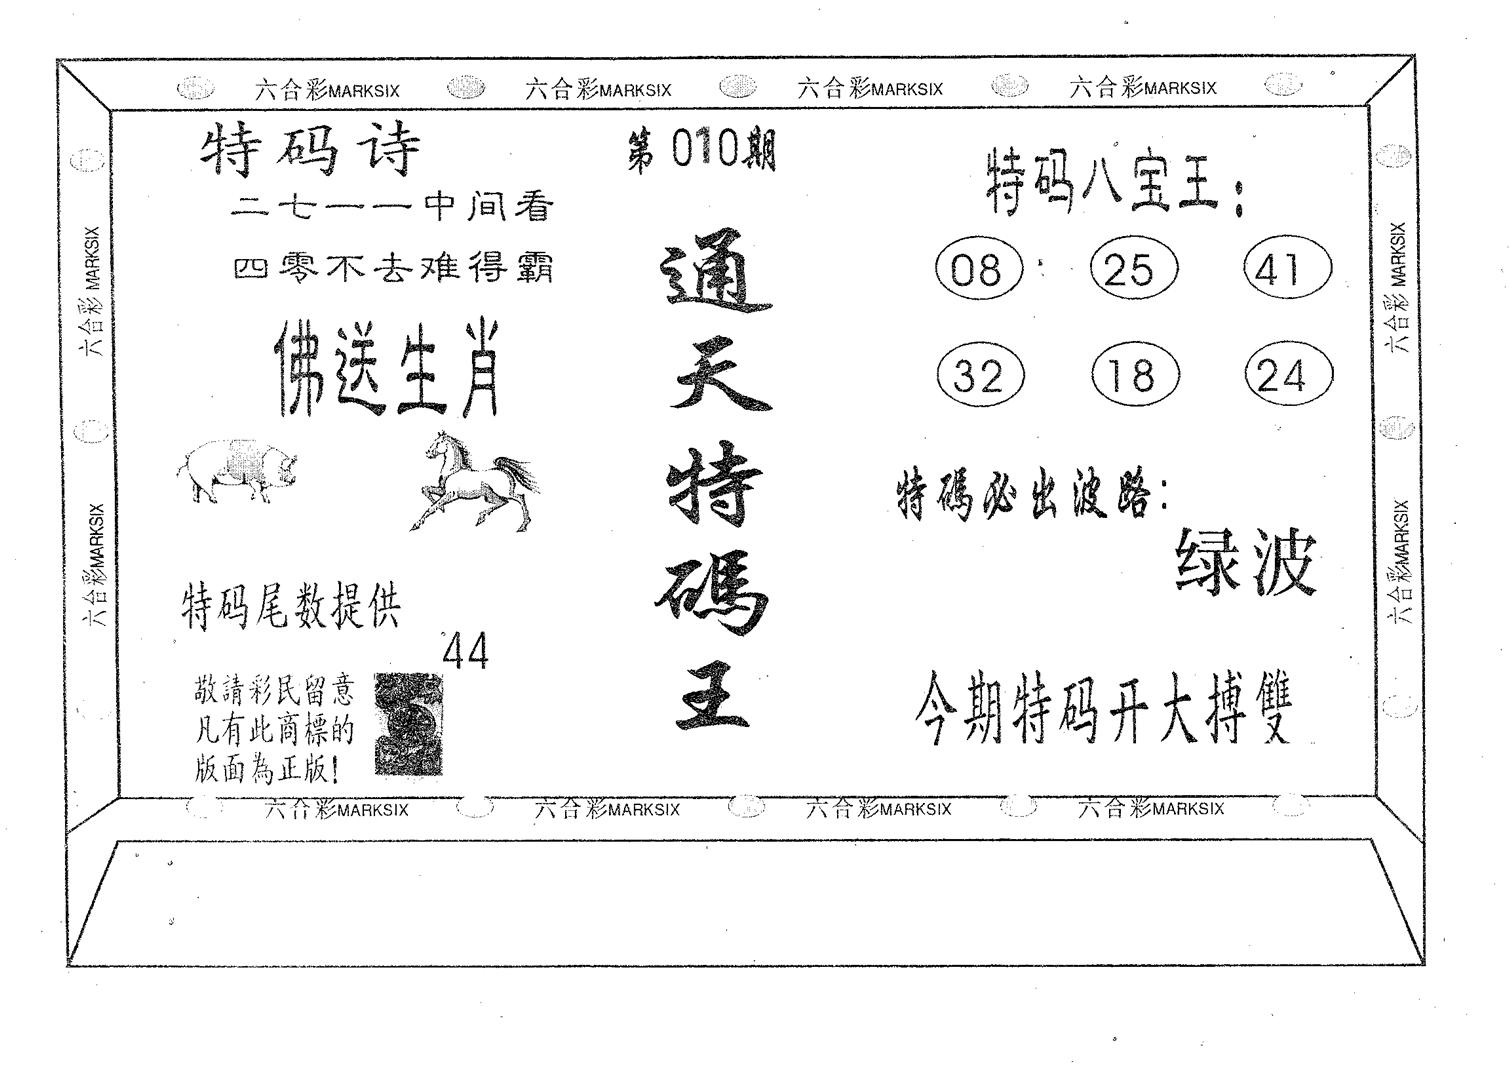 六合彩MARKSIX 六合彩MARKSIX 六合彩MARKSIX 六合彩MARKSIX
特码诗
二七一一中间看
四零不去难得霸
佛送生肖
特码尾数提供
44
敬請彩民留意
凡有此商標的
版面為正版!
第010期
通
天
特
碼
王
特码八宝王:
08 25 41
32 18 24
特碼必出波路:
绿波
今期特码开大搏雙
六合彩 MARKSIX
六合彩MARKSIX
六合彩 MARKSIX
六合彩MARKSIX
六合彩MARKSIX 六合彩MARKSIX 六合彩MARKSIX 六合彩MARKSIX